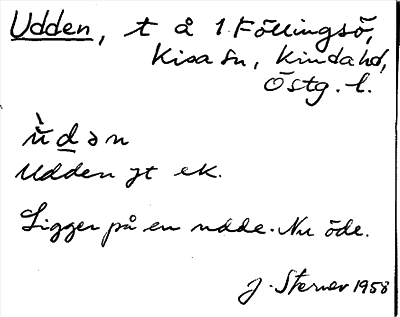 Udden, t å 1. Föllingsö,
Kisa sn, Kinda hd,
Östg. l.
ùdən
Udden jt ek.
Ligger på en udde. Nu öde.
J. Sterner 1958